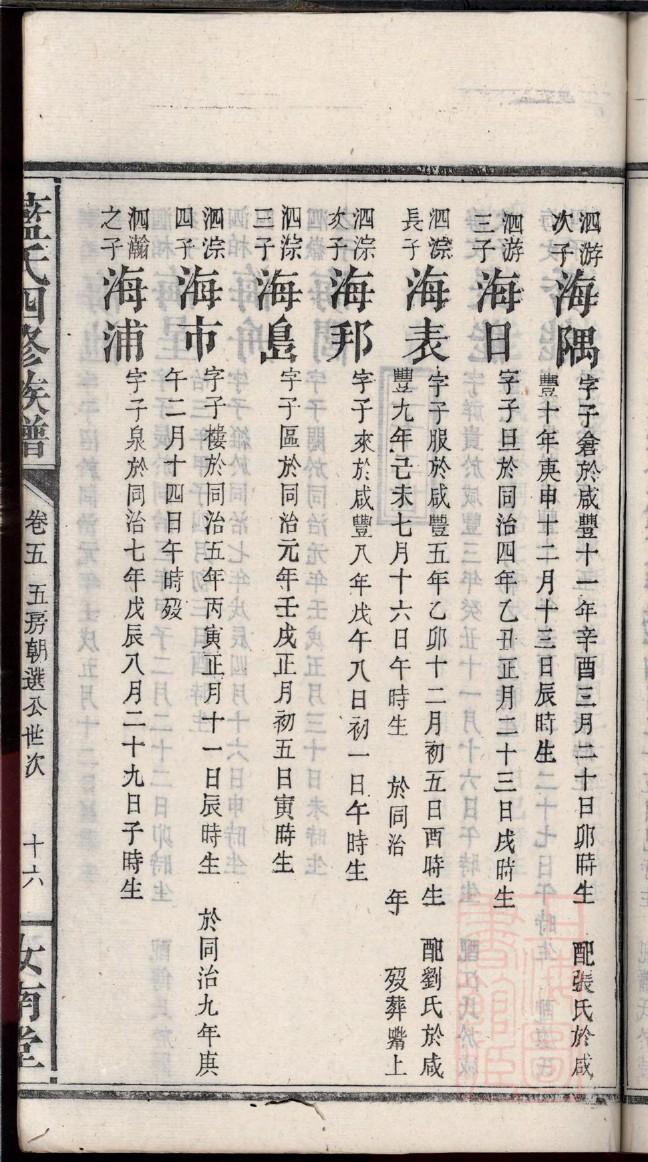 泗游次子
海隅
字子倉於咸豐十一年辛酉三月二十日卯時生 配張氏於咸
豐十年庚申十二月十三日辰時生
泗游三子
海日
字子旦於同治四年乙丑正月二十三日戌時生
泗淙長子
海表
字子服於咸豐五年乙卯十二月初五日酉時生 配劉氏於咸
豐九年己未七月十六日午時生 於同治 年 歿葬嘴上
泗淙次子
海邦
字子來於咸豐八年戊午八日初一日午時生
泗淙三子
海島
字子區於同治元年壬戌正月初五日寅時生
泗淙四子
海市
字子樓於同治五年丙寅正月十一日辰時生 於同治九年庚
午二月十四日午時歿
泗瀚之子
海浦
字子泉於同治七年戊辰八月二十九日子時生
藍氏四修族譜 卷五 五房朝選公世次 十六 汝南堂